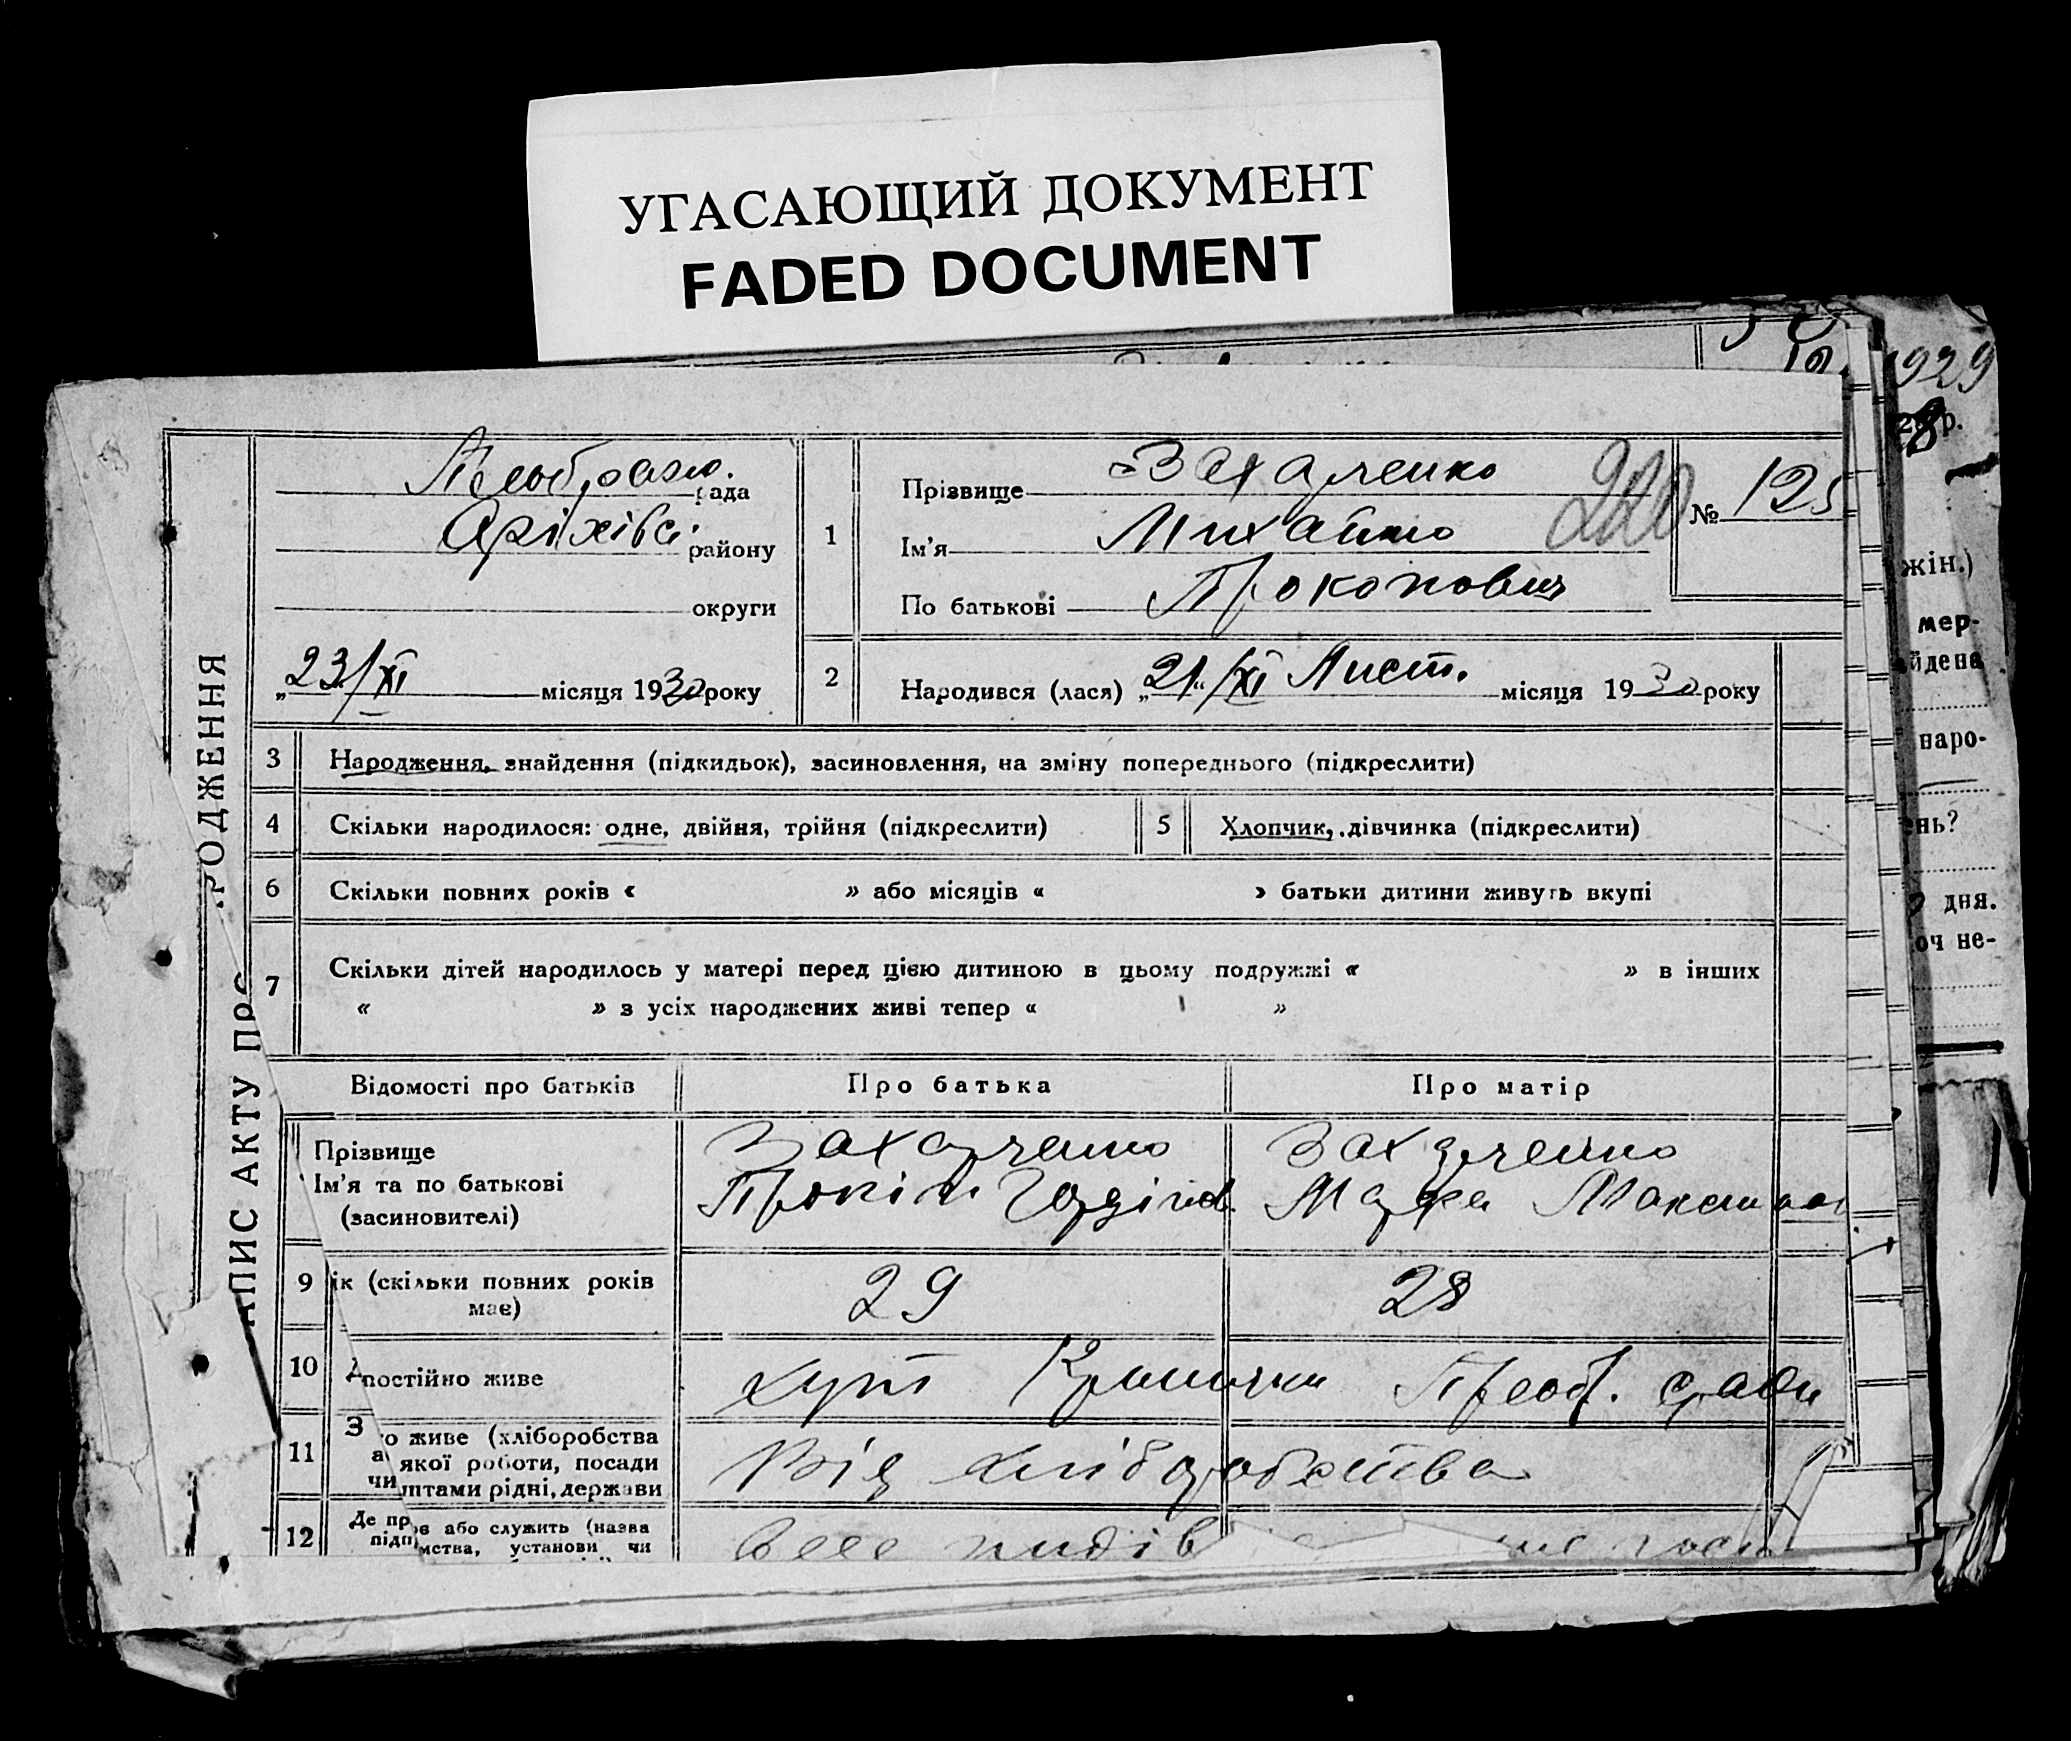 УГАСАЮЩИЙ ДОКУМЕНТ
FADED DOCUMENT
1929
28 р.
рада
Оріхівс. району
округи
„23/XI місяця 1930 року
1
Прізвище Захарченко
Ім'я Михайло
По батькові Прокопович
220
№ 125
2
Народився (лася) „21“/XI Лист. місяця 1930 року
3 Народження, знайдення (підкидьок), засиновлення, на зміну попереднього (підкреслити)
4 Скільки народилося: одне, двійня, трійня (підкреслити)
5 Хлопчик, дівчинка (підкреслити)
6 Скільки повних років « » або місяців « » батьки дитини живуть вкупі
7 Скільки дітей народилось у матері перед цією дитиною в цьому подружжі « » в інших
« » з усіх народжених живі тепер « »
Відомості про батьків
Про батька
Про матір
Прізвище
Ім'я та по батькові
(засиновителі)
Захарченко
Прокіп Гордієв.
Захарченко
Марфа Максимов
9 ік (скільки повних років
має)
29
28
10 постійно живе
хут Преоб. ради
11 З го живе (хліборобства
якої роботи, посади
чи штами рідні, держави
Від хліборобства
12 Де пр ює або служить (назва
підп мства, установи чи
АПИС АКТУ ПРО РОДЖЕННЯ
жін.)
мер-
йдене
наро-
ень?
дня.
оч не-